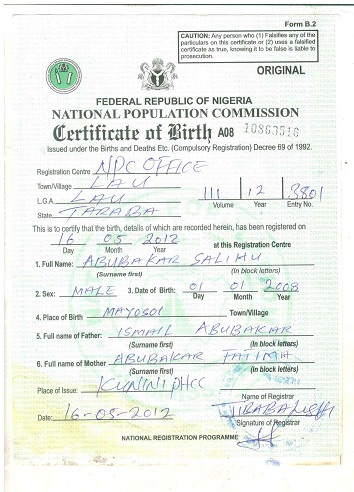 Form B.2
CAUTION: Any person who (1) Falsifies any of the
particulars on this certificate or (2) uses a falsified
certificate as true, knowing it to be false is liable to
prosecution.
ORIGINAL
FEDERAL REPUBLIC OF NIGERIA
NATIONAL POPULATION COMMISSION
Certificate of Birth A08 10863516
Issued under the Births and Deaths Etc. (Compulsory Registration) Decree 69 of 1992.
Registration Centre NPC OFFICE
Town/Village LAU
L.G.A. LAU
State TARABA
111 12 3801
Volume Year Entry No.
This is to certify that the birth, details of which are recorded herein, has been registered on
16 05 2012 at this Registration Centre
Day Month Year
1. Full Name: ABUBAKAR SALIHU
(Surname first) (In block letters)
2. Sex: MALE 3. Date of Birth: 01 01 2008
Day Month Year
4. Place of Birth MAYOSOI Town/Village
5. Full name of Father: ISMAIL ABUBAKAR
(Surname first) (In block letters)
6. Full name of Mother ABUBAKAR FATIMA
(Surname first) (In block letters)
Place of Issue: KUNINI PHCC
Name of Registrar
Date: 16-05-2012
Signature of Registrar
NATIONAL REGISTRATION PROGRAMME